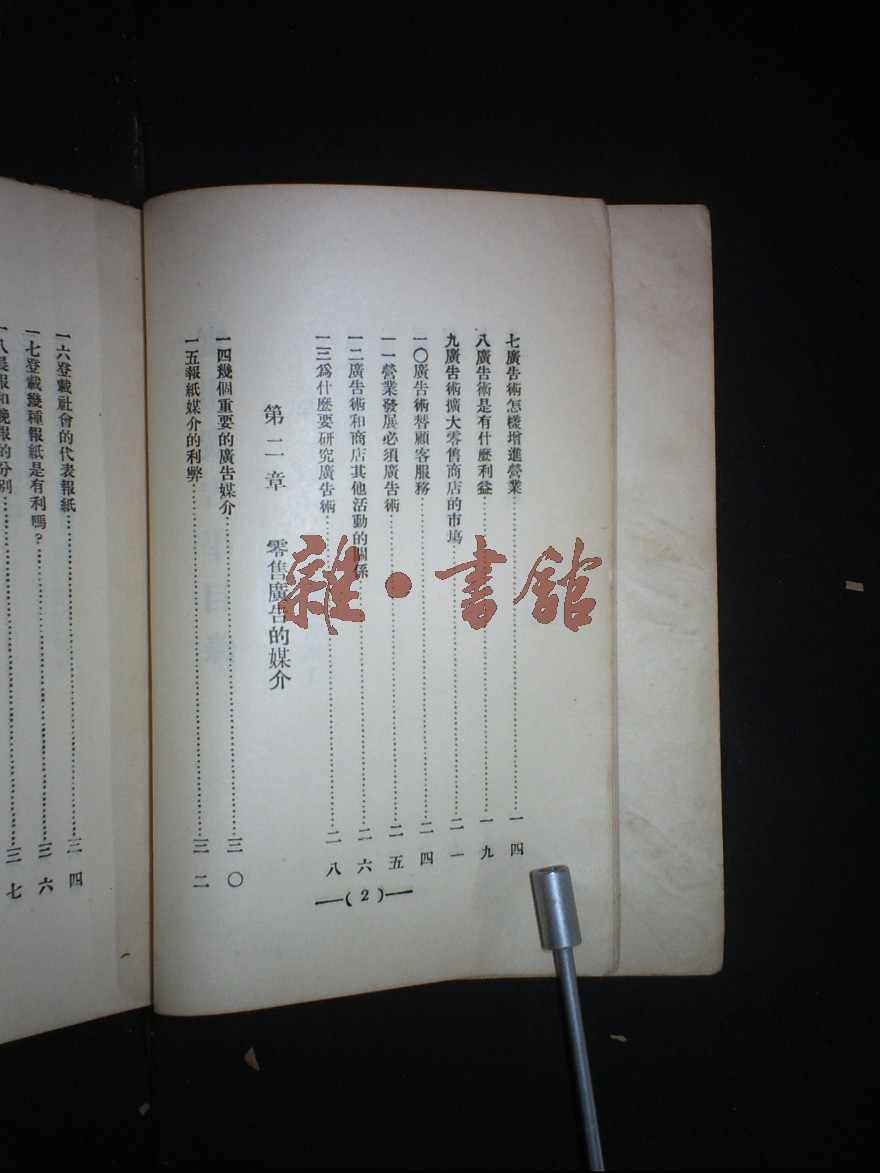 七廣告術怎樣增進營業……一四
八廣告術是有什麼利益……一九
九廣告術擴大零售商店的市場……二一
一〇廣告術替顧客服務……二四
一一營業發展必須廣告術……二五
一二廣告術和商店其他活動的關係……二六
一三爲什麼要研究廣告術……二八
第二章 零售廣告的媒介
一四幾個重要的廣告媒介……三〇
一五報紙媒介的利弊……三二
—(2)—
一六登載社會的代表報紙……三四
一七登載幾種報紙是有利嗎?……三六
一八晨報和晚報的分別……三七
雜·書館